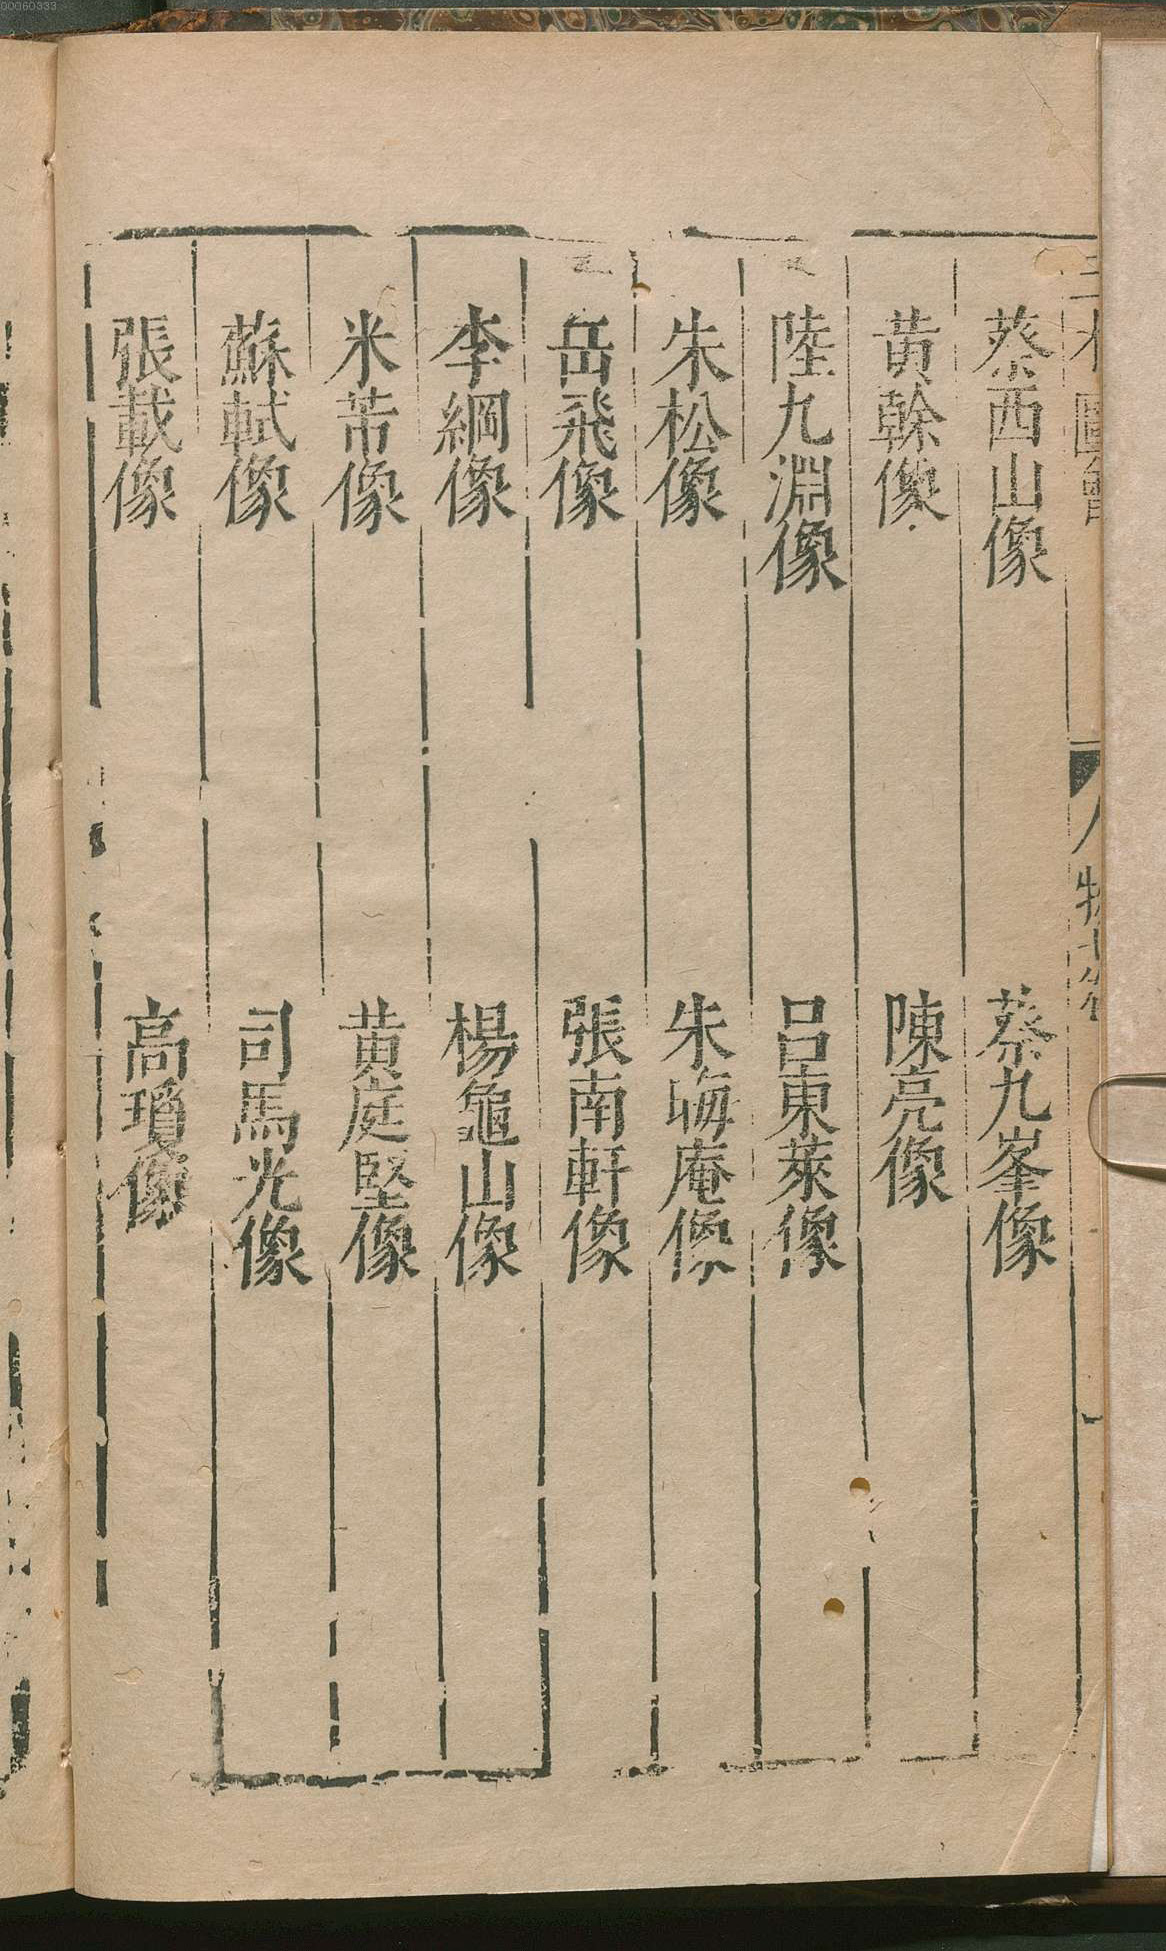 00060333
蔡西山像　蔡九峯像
黄榦像　陳亮像
陸九淵像　呂東萊像
朱松像　朱晦庵像
岳飛像　張南軒像
李綱像　楊龜山像
米芾像　黄庭堅像
蘇軾像　司馬光像
張載像　高瓊像